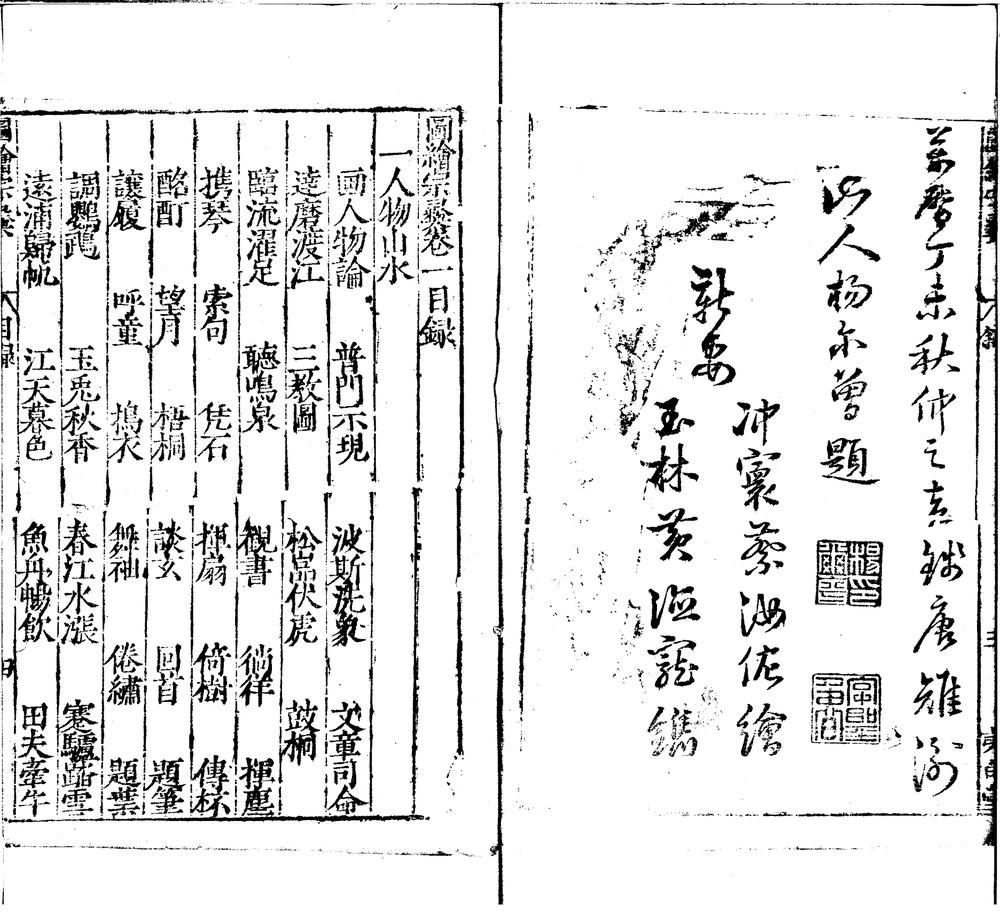 萬曆丁未秋仲之吉錢唐雉衡
山人楊爾曾題
新安
冲寰蔡汝佐繪
玉林黃德寵鐫
圖繪宗彝卷一目録
一人物山水
畫人物論 普門示現 波斯洗象 文童司命
達磨渡江 三教圖 松嵓伏虎 鼓桐
臨流濯足 聽鳴泉 觀書 徜徉 揮麈
携琴 索句 凭石 揮扇 倚樹 傳杯
酩酊 望月 梧桐 談玄 回首 題筆
讓履 呼童 搗衣 舞袖 倦繡 題葉
調鸚鵡 玉兎秋香 春江水漲 蹇驢踏雪
遠浦歸帆 江天暮色 魚舟暢飲 田夫牽牛
目録